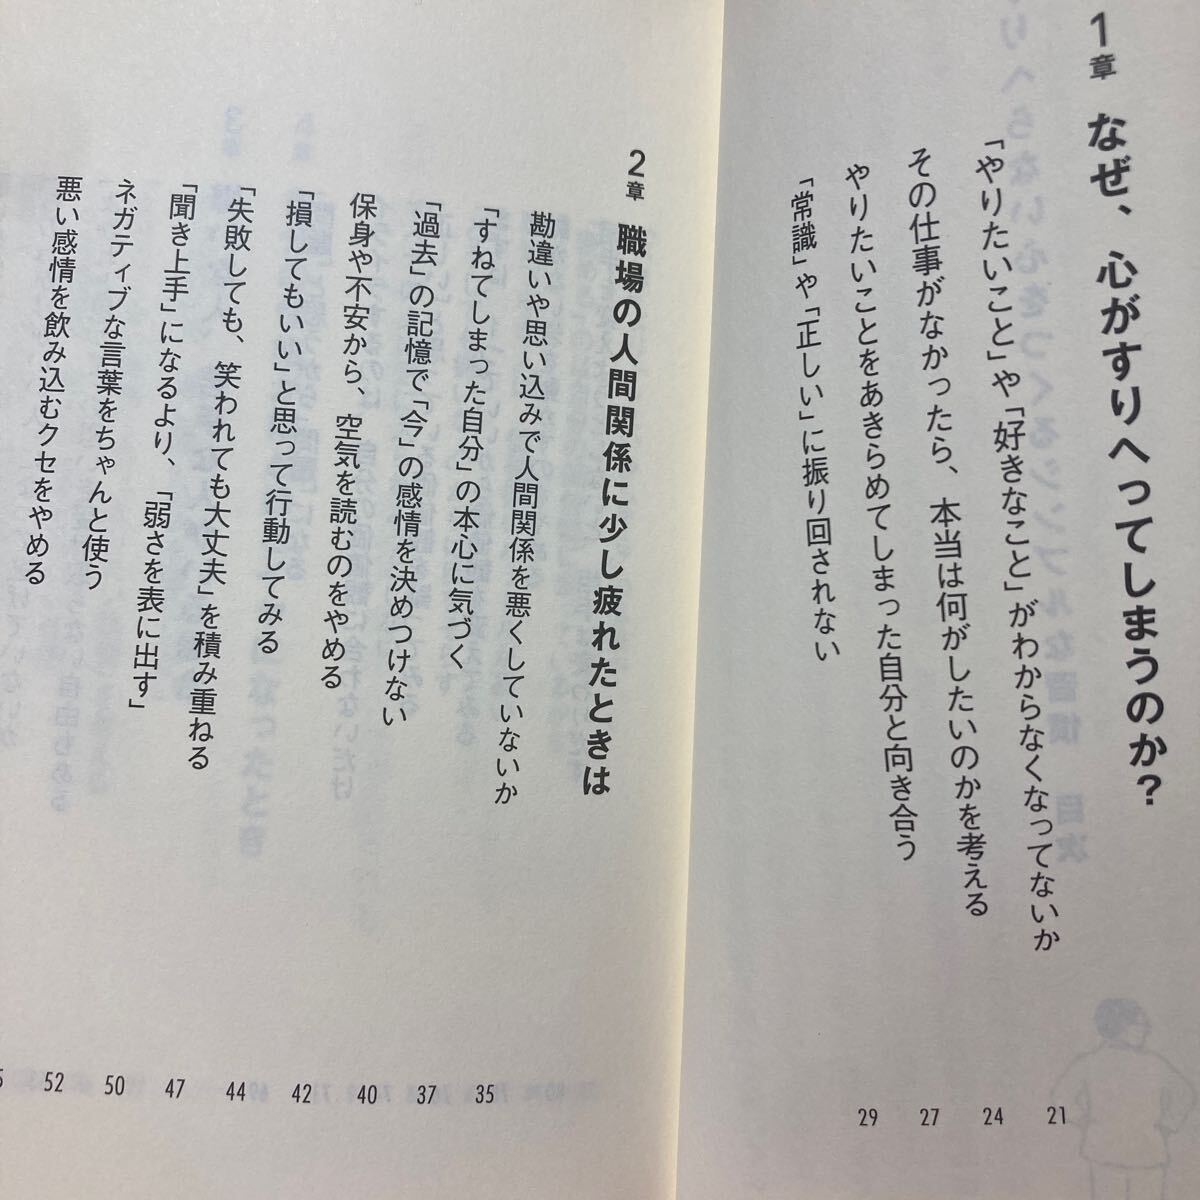 1章 なぜ、心がすりへってしまうのか?
「やりたいこと」や「好きなこと」がわからなくなってないか 21
その仕事がなかったら、本当は何がしたいのかを考える 24
やりたいことをあきらめてしまった自分と向き合う 27
「常識」や「正しい」に振り回されない 29
2章 職場の人間関係に少し疲れたときは
勘違いや思い込みで人間関係を悪くしていないか 35
「すねてしまった自分」の本心に気づく 37
「過去」の記憶で「今」の感情を決めつけない 40
保身や不安から、空気を読むのをやめる 42
「損してもいい」と思って行動してみる 44
「失敗しても、笑われても大丈夫」を積み重ねる 47
「聞き上手」になるより、「弱さを表に出す」 50
ネガティブな言葉をちゃんと使う 52
悪い感情を飲み込むクセをやめる